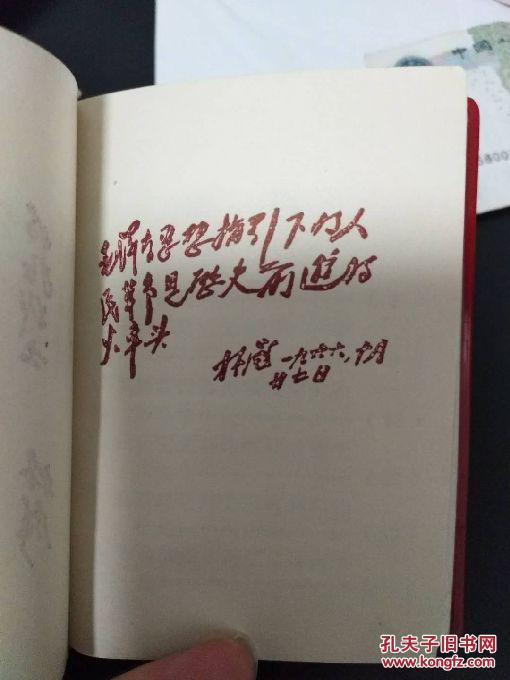 毛泽东思想指引下的人
民革命是历史前进的
火车头
林彪 一九六六、十月
廿七日
中国
6800
孔夫子旧书网
www.kongfz.com